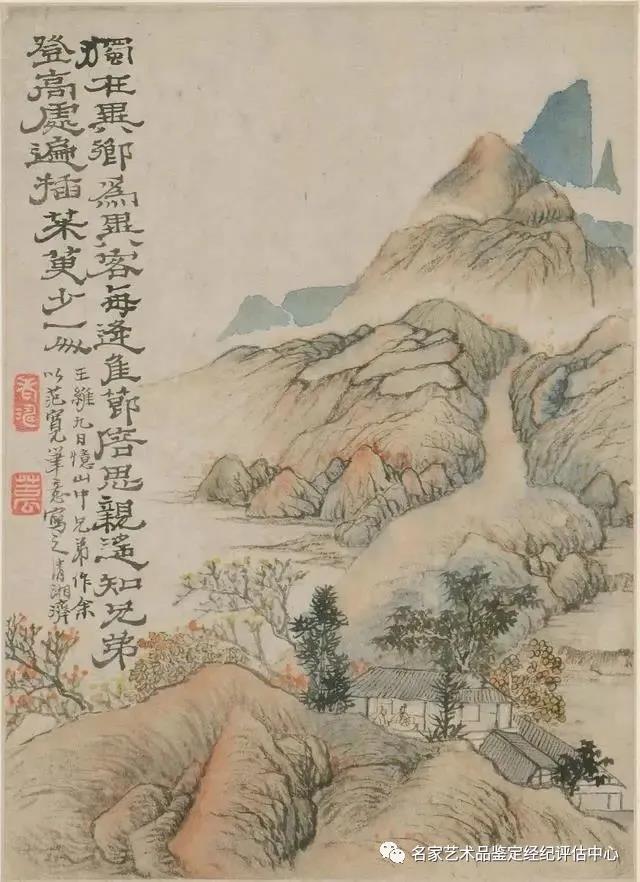 獨在異鄉為異客每逢佳節倍思親遙知兄弟
登高處遍插茱萸少一人
王維九日憶山中兄弟作余
以范寬筆意寫之清湘濟
名家艺术品鉴定经纪评估中心